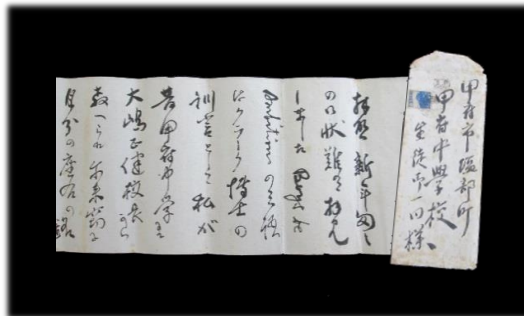 甲府市塩部町
甲府中學校
生徒御一同様
拝啓 新年匆々
の御状難有拝見
しました
クラーク博士の
訓言として私が
昔甲府中学
大嶋正健校長から
教へられ爾来
自分の座右の銘